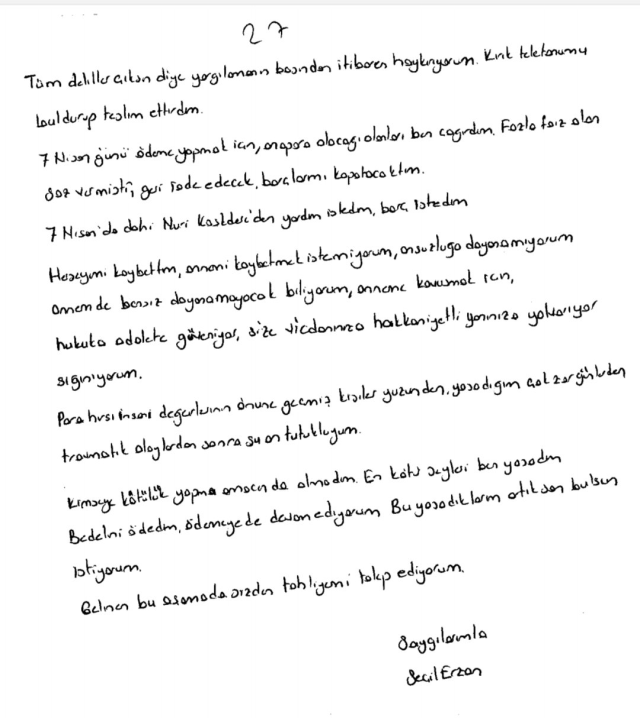 27
Tüm deliller çıksın diye yargılamanın başından itibaren haykırıyorum. Kırık telefonumu
buldurup teslim ettirdim.
7 Nisan günü ödeme yapmak için, onapara alacağı olanları ben çağırdım. Fazla faiz alan
söz vermişti, geri iade edecek, borçlarımı kapatacaktım.
7 Nisan'da dahi Nuri 'den yardım istedim, borç istedim
Herşeyimi kaybettim, annemi kaybetmek istemiyorum, onsuzluğa dayanamıyorum
annem de bensiz dayanamayacak biliyorum, anneme kavuşmak için,
hukuka adalete güveniyor, size vicdanınıza hakkaniyetli yanınıza yalvarıyor
sığınıyorum.
Para hırsı insani değerlerinin önüne geçmiş kişiler yüzünden, yaşadığım çok zor günlerden
travmatik olaylardan sonra şu an tutukluyum.
Kimseye kötülük yapma amacında olmadım. En kötü şeyleri ben yaşadım
Bedelini ödedim, ödemeye de devam ediyorum Bu yaşadıklarım artık son bulsun
istiyorum.
Gelinen bu aşamada sizden tahliyemi talep ediyorum.
Saygılarımla
Seçil Erzan